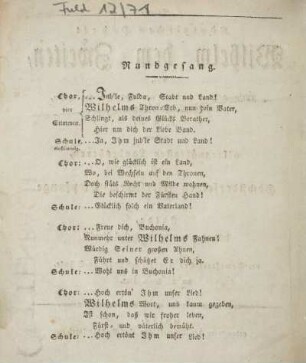 Fuld 12/71
Rundgesang.
Chor: ... Juble, Fulda, Stadt und Land!
Wilhelms Throns-Erb, nun dein Vater,
Schlingt, als deines Glücks Berather,
Hier um dich der Liebe Band.
Schule: ... Ja, Ihm juble Stadt und Land!
Chor: ... O, wie glücklich ist ein Land,
Wo, bei Wechseln auf den Thronen,
Doch stäts Recht und Milde wohnen,
Die beschirmt der Fürsten Hand!
Schule: ... Glücklich solch ein Vaterland!
Chor: ... Freue dich, Buchonia,
Nunmehr unter Wilhelms Fahnen!
Würdig Seiner großen Ahnen,
Führt und schützet Er dich ja.
Schule: ... Wohl uns in Buchonia!
Chor: ... Hoch ertön' Ihm unser Lied!
Wilhelms Wort, uns kaum gegeben,
Ist schon, daß wir froher leben,
Fürst- und väterlich bemüht.
Schule: ... Hoch ertön' Ihm unser Lied!